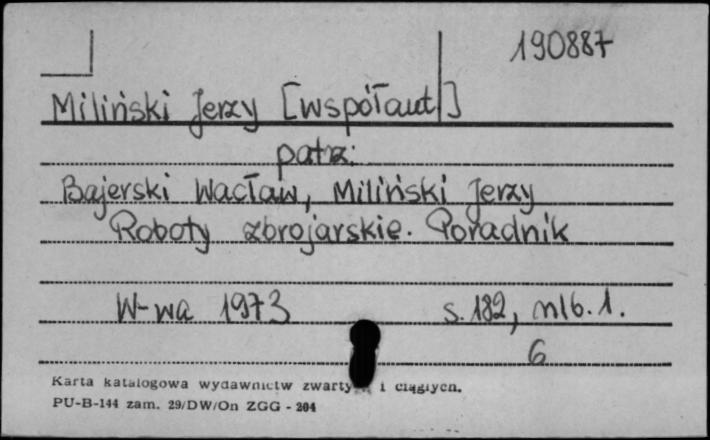 190887
Miliński Jerzy [współaut]
patrz:
Bajerski Wacław, Miliński Jerzy
Roboty zbrojarskie. Poradnik
W-wa 1973 s. 182, nlb. 1.
6
Karta katalogowa wydawnictw i ciągłych.
PU-B-144 zam. 29/DW/On ZGG - 204